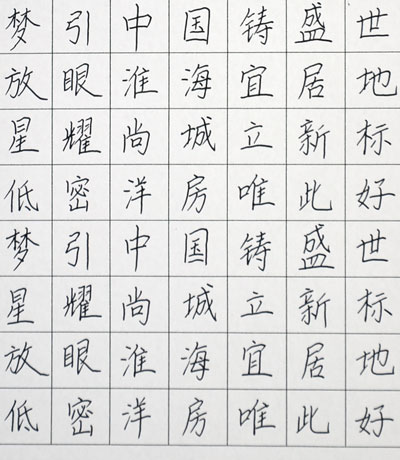 梦引中国铸盛世
放眼淮海宜居地
星耀尚城立新标
低密洋房唯此好
梦引中国铸盛世
星耀尚城立新标
放眼淮海宜居地
低密洋房唯此好